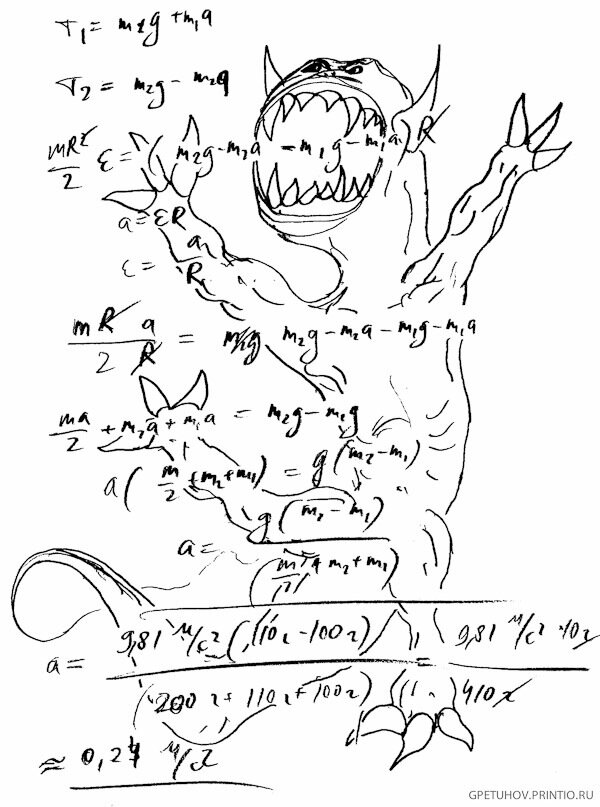 T₁ = m₂g + m₁a
T₂ = m₂g - m₂a
mR²/2 ε = m₂g - m₂a - m₁g - m₁a R
a = εR
ε = a/R
mR a / 2 R = m₂g m₂g - m₂a - m₁g - m₁a
ma/2 + m₂a + m₁a = m₂g - m₁g
a(m/2 + m₂ + m₁) = g(m₂ - m₁)
a = g(m₂ - m₁) / (m/2 + m₂ + m₁)
a = 9,81 м/с² (110г - 100г) / (200г + 110г + 100г) = 9,81 м/с² 10г / 410г
≈ 0,24 м/с²
GPETUHOV.PRINTIO.RU